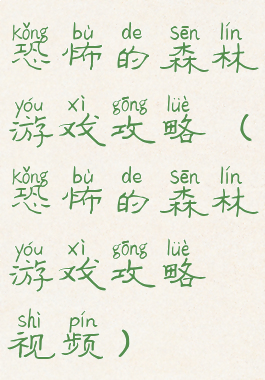 kǒng bù de sēn lín
恐怖的森林
yóu xì gōng lüè
游戏攻略 (
kǒng bù de sēn lín
恐怖的森林
yóu xì gōng lüè
游戏攻略
shì pín
视频)